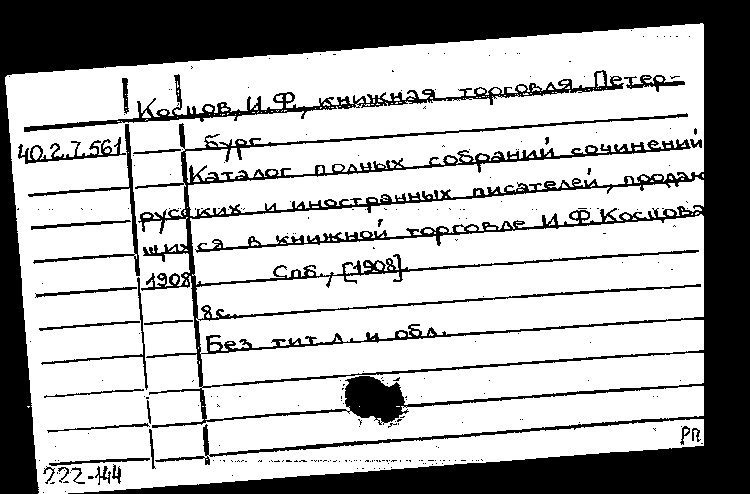 Косцов, И.Ф., книжная торговля. Петер-
40.2.7.561 бург.
Каталог полных собраний сочинений
русских и иностранных писателей, продаю
щихся в книжной торговле И.Ф.Косцова
1908. Спб., [1908].
8с.
Без тит.л. и обл.
РП
222-144